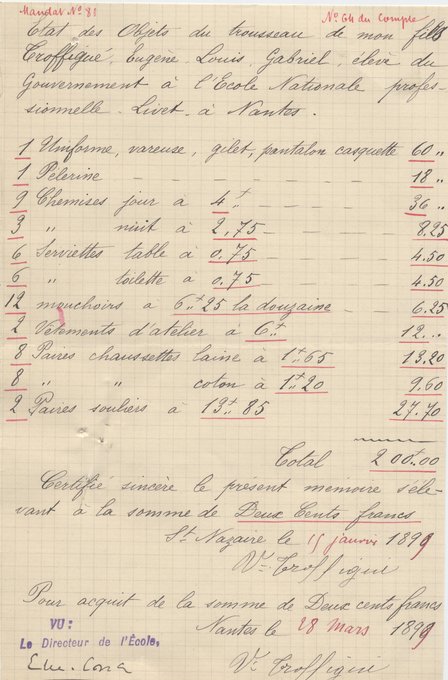 Mandat Nº 81
Nº 64 du Compte
Etat des Objets du trousseau de mon fils
Troffigué, Eugène, Louis, Gabriel, élève du
Gouvernement à l'Ecole Nationale profes-
sionnelle Livet à Nantes.
1 Uniforme, vareuse, gilet, pantalon casquette 60 "
1 Pélerine 18 "
9 Chemises jour à 4f 36 "
3 " nuit à 2,75 8.25
6 Serviettes table à 0.75 4.50
6 " toilette à 0.75 4.50
12 mouchoirs à 6f25 la douzaine 6.25
2 Vêtements d'atelier à 6f 12 "
8 Paires chaussettes laine à 1f65 13.20
8 " " coton à 1f20 9.60
2 Paires souliers à 13f85 27.70
Total 200f00
Certifié sincère le présent mémoire s'éle-
vant à la somme de Deux Cents francs
St Nazaire le 15 janvier 1899
Ve Troffigué
Pour acquit de la somme de Deux cents francs
Nantes le 28 Mars 1899
VU:
Le Directeur de l'École,
Ve Troffigué